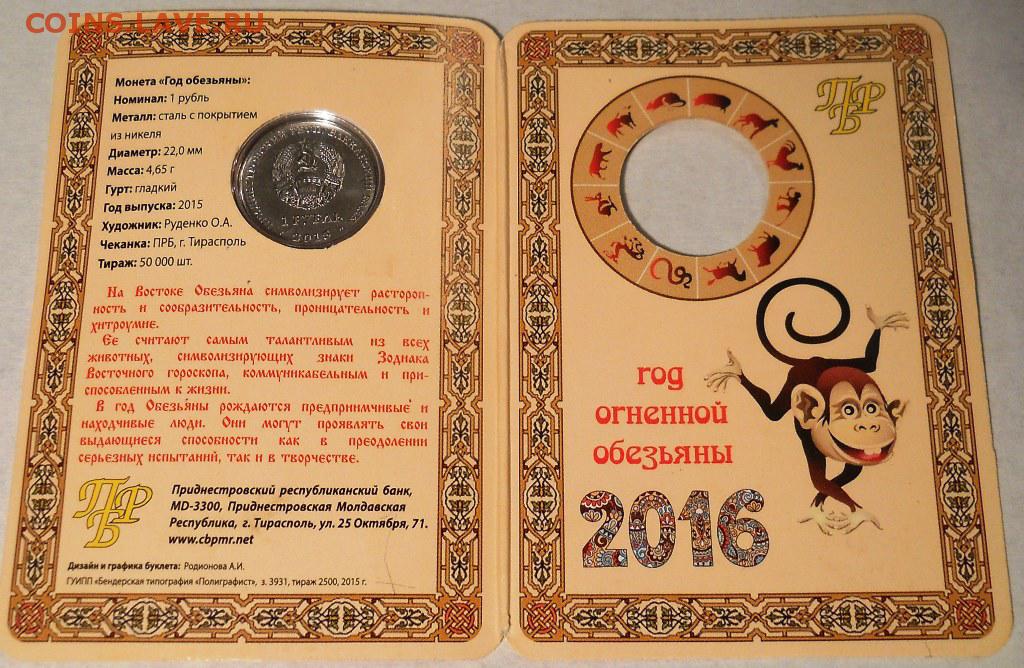 COINS.LAVE.RU
Монета «Год обезьяны»:
Номинал: 1 рубль
Металл: сталь с покрытием
из никеля
Диаметр: 22,0 мм
Масса: 4,65 г
Гурт: гладкий
Год выпуска: 2015
Художник: Руденко О.А.
Чеканка: ПРБ, г. Тирасполь
Тираж: 50 000 шт.
1 РУБЛЬ
2015
На Востоке Обезьяна символизирует растороп-
ность и сообразительность, проницательность и
хитроумие.
Ее считают самым талантливым из всех
животных, символизирующих знаки Зодиака
Восточного гороскопа, коммуникабельным и при-
способленным к жизни.
В год Обезьяны рождаются предприимчивые и
находчивые люди. Они могут проявлять свои
выдающиеся способности как в преодолении
серьезных испытаний, так и в творчестве.
ПРБ
Приднестровский республиканский банк,
MD-3300, Приднестровская Молдавская
Республика, г. Тирасполь, ул. 25 Октября, 71.
www.cbpmr.net
Дизайн и графика буклета: Родионова А.И.
ГУИПП «Бендерская типография «Полиграфист», з. 3931, тираж 2500, 2015 г.
ПРБ
год
огненной
обезьяны
2016